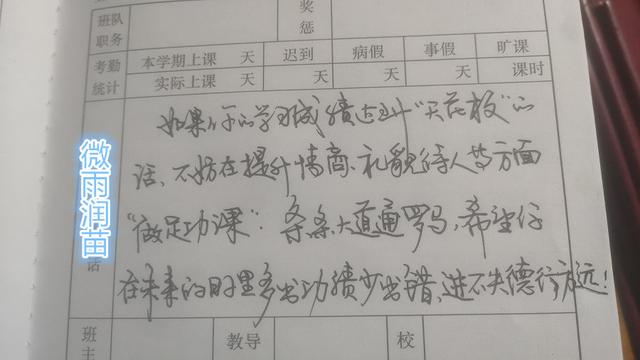 班队职务 奖惩
考勤统计 本学期上课 天 迟到 病假 事假 旷课
实际上课 天 天 天 天 课时
如果你的学习成绩达到“天花板”的
话、不妨在提升情商、礼貌待人等方面
“做足功课”:条条大道通罗马,希望你
在未来的时里多出功绩少出错,进不失德行方远!
微雨润苗
话
班主 教导 校